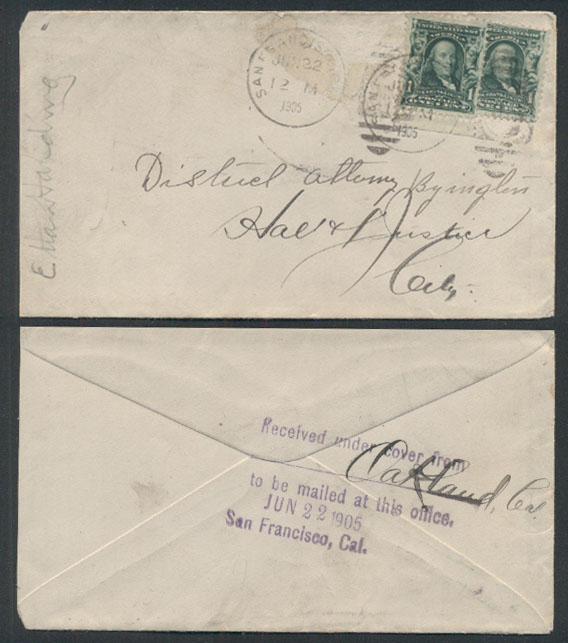 SAN FRANCISCO
JUN 22
12 M
1905
1905
District Attorney Byington
Hall of Justice
City.
Received under cover from
Oakland, Cal.
to be mailed at this office.
JUN 22 1905
San Francisco, Cal.